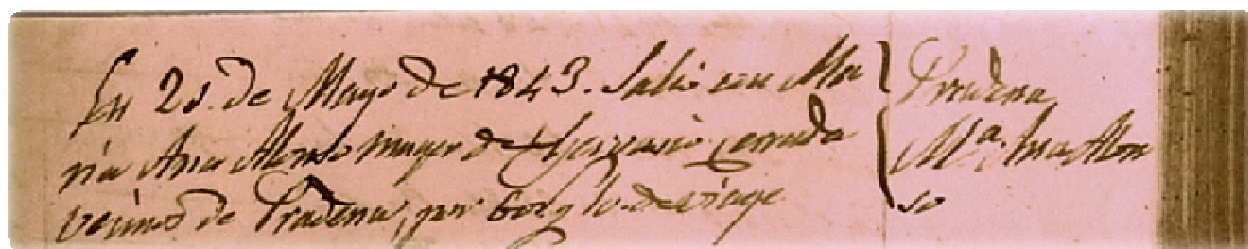 En 20. de Mayo de 1843. Salio con Ma
ria Ana Alonso muger de
vecino de Pradena, por
Pradena,
Mª. Ana Alon
so